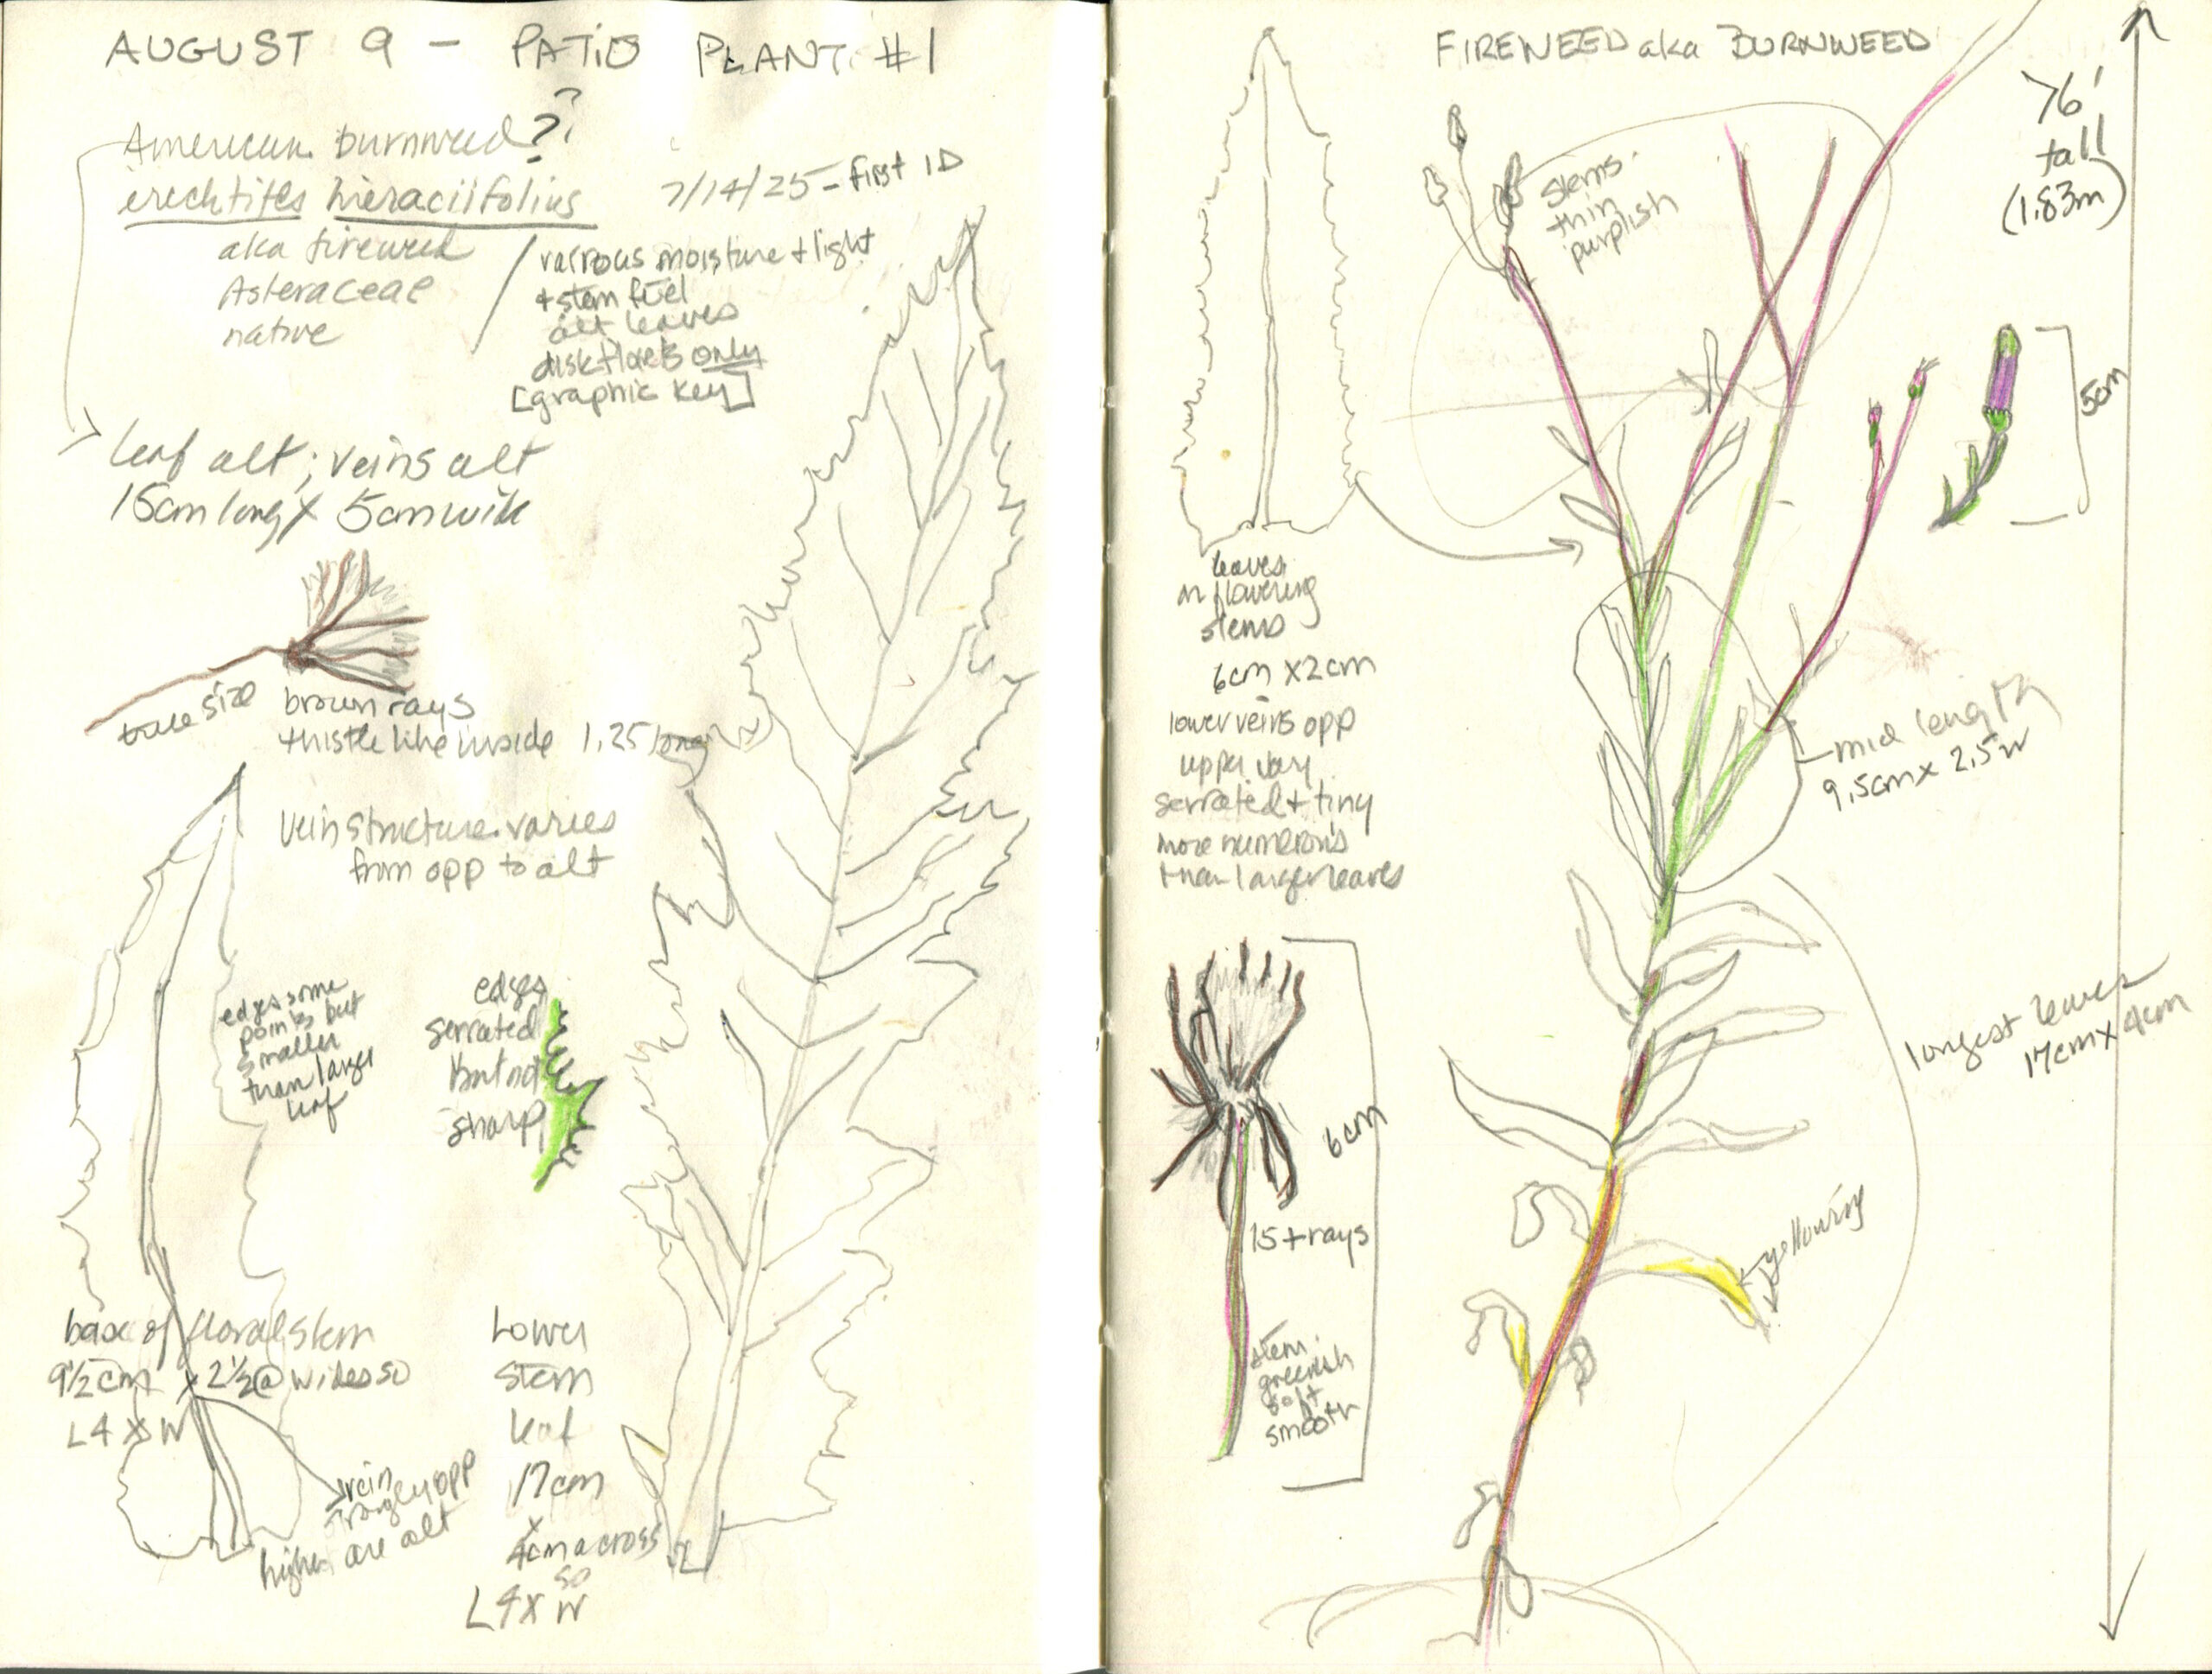 AUGUST 9 – PATIO PLANT #1
American burnweed??
erechtites hieraciifolius
7/14/25 – first ID
aka fireweed
Asteraceae
native
various moisture + light
+ stem fuel
alt leaves
disk florets only
[graphic key]
leaf alt; veins alt
15cm long x 5cm wide
true size
brown rays
thistle like inside 1.25 long
vein structure varies
from opp to alt
edges some
points but
smaller
than larger
leaf
edges
serrated
but not
sharp
base of floral stem
9½ cm x 2½ @ widest so
L 4 x W
vein
opp
higher are alt
Lower
stem
leaf
17cm
x
4cm across
so
L 4 x W
FIREWEED aka BURNWEED
>6'
tall
(1.83m)
stems
thin
purplish
5cm
leaves
on flowering
stems
6cm x 2cm
lower veins opp
upper vary
serrated + tiny
more numerous
than larger leaves
mid length
9.5cm x 2.5w
longest leaves
17cm x 4cm
6cm
15+ rays
yellowing
stem
greenish
soft
smooth